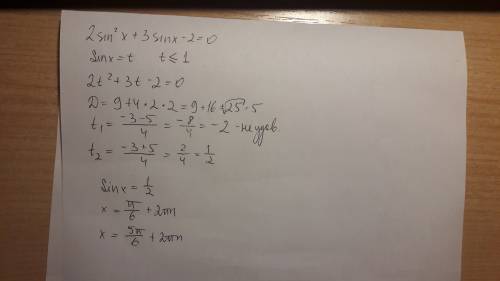 2sin²x + 3sinx - 2 = 0
sinx = t    t ≤ 1
2t² + 3t - 2 = 0
D = 9 + 4 · 2 · 2 = 9 + 16 = √25 = 5
t₁ = (-3-5)/4 = -8/4 = -2 - не удов.
t₂ = (-3+5)/4 = 2/4 = 1/2
sinx = 1/2
x = π/6 + 2πn
x = 5π/6 + 2πn